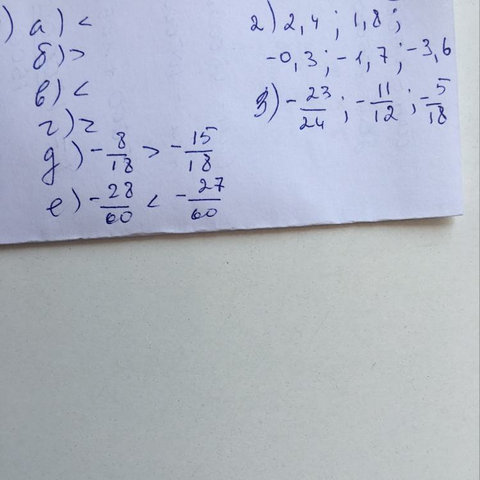 ) а) <
б) >
в) <
г) >
д) -8/18 > -15/18
е) -28/60 < -27/60
2) 2,4 ; 1,8 ;
-0,3 ; -1,7 ; -3,6
3) -23/24 ; -11/12 ; -5/18